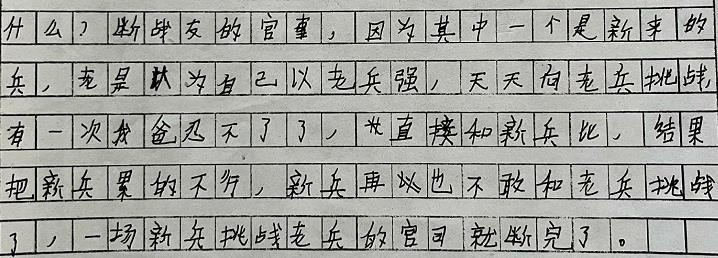 什么）断战友的官事，因为其中一个是新来的
兵，老是认为自己以老兵强，天天向老兵挑战，
有一次我爸忍不了了，就直接和新兵比，结果
把新兵累的不行，新兵再以也不敢和老兵挑战
了，一场新兵挑战老兵的官司就断完了。